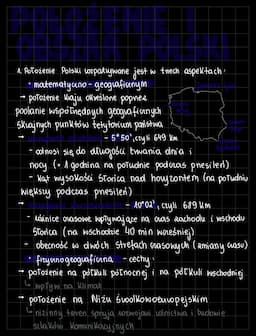 1. Położenie Polski rozpatrywane jest w trzech aspektach:
• matematyczno-geograficznym
→ położenie kraju określone poprzez
podanie współrzędnych geograficznych
skrajnych punktów terytorium państwa
→ 5°50', czyli 649 km
- odnosi się do długości trwania dnia i
nocy (+ 1 godzina na południe podczas przesileń)
- kąt wysokości Słońca nad horyzontem (na południu
większy podczas przesileń)
→ 10°02', czyli 689 km
- różnice czasowe wpływające na czas zachodu i wschodu
Słońca (na wschodzie 40 min wcześniej)
- obecność w dwóch strefach czasowych (zmiany czasu)
• fizycznogeograficzna - cechy:
→ położenie na półkuli północnej i na półkuli wschodniej
↳ wpływ na klimat
→ położenie na Niżu Środkowoeuropejskim
↳ nizinny teren sprzyja rozwojowi rolnictwa i budowie
szlaków komunikacyjnych